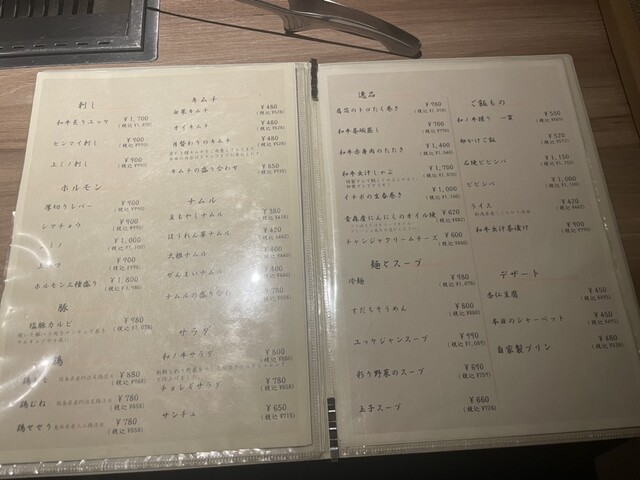 刺し
和牛炙りユッケ ¥1,700
センマイ刺し ¥900
(税込¥990)
上ミノ刺し ¥900
(税込¥990)
ホルモン
厚切りレバー ¥900
(税込¥990)
シマチョウ ¥900
(税込¥990)
ミノ ¥1,000
(税込¥1,100)
¥900
(税込¥990)
ホルモン三種盛り ¥1,800
(税込¥1,980)
豚
塩豚カルビ ¥980
(税込¥1,078)
鶏
¥880
(税込¥968)
鶏むね ¥780
(税込¥858)
鶏せせり ¥780
(税込¥858)
キムチ
白菜キムチ ¥480
(税込¥528)
オイキムチ ¥480
(税込¥528)
月替わりのキムチ ¥480
(税込¥528)
キムチの盛り合わせ ¥850
(税込¥935)
ナムル
豆もやしナムル ¥380
(税込¥418)
ほうれん草ナムル ¥420
(税込¥462)
大根ナムル ¥400
(税込¥440)
ぜんまいナムル ¥400
(税込¥440)
ナムルの盛り合わせ ¥780
(税込¥858)
サラダ
和ノ牛サラダ ¥800
(税込¥880)
チョレギサラダ ¥780
(税込¥858)
サンチュ ¥650
(税込¥715)
逸品
¥980
(税込¥1,078)
和牛茶碗蒸し ¥700
(税込¥770)
和牛赤身肉のたたき ¥1,400
(税込¥1,540)
和牛出汁しゃぶ ¥1,700
イチボの生春巻き ¥1,000
(税込¥1,100)
青森産にんにくのオイル焼 ¥620
(税込¥682)
チャンジャクリームチーズ ¥600
(税込¥660)
麺とスープ
冷麺 ¥980
(税込¥1,078)
すだちそうめん ¥800
(税込¥880)
ユッケジャンスープ ¥990
(税込¥1,089)
彩り野菜のスープ ¥690
(税込¥759)
玉子スープ ¥660
(税込¥726)
ご飯もの
和ノ牛握り 一貫 ¥550
卵かけご飯 ¥520
(税込¥572)
石焼ビビンバ ¥1,150
ビビンバ ¥1,000
(税込¥1,100)
ライス ¥420
(税込¥462)
和牛出汁茶漬け ¥900
(税込¥990)
デザート
杏仁豆腐 ¥450
(税込¥495)
本日のシャーベット ¥450
(税込¥495)
自家製プリン ¥480
(税込¥528)